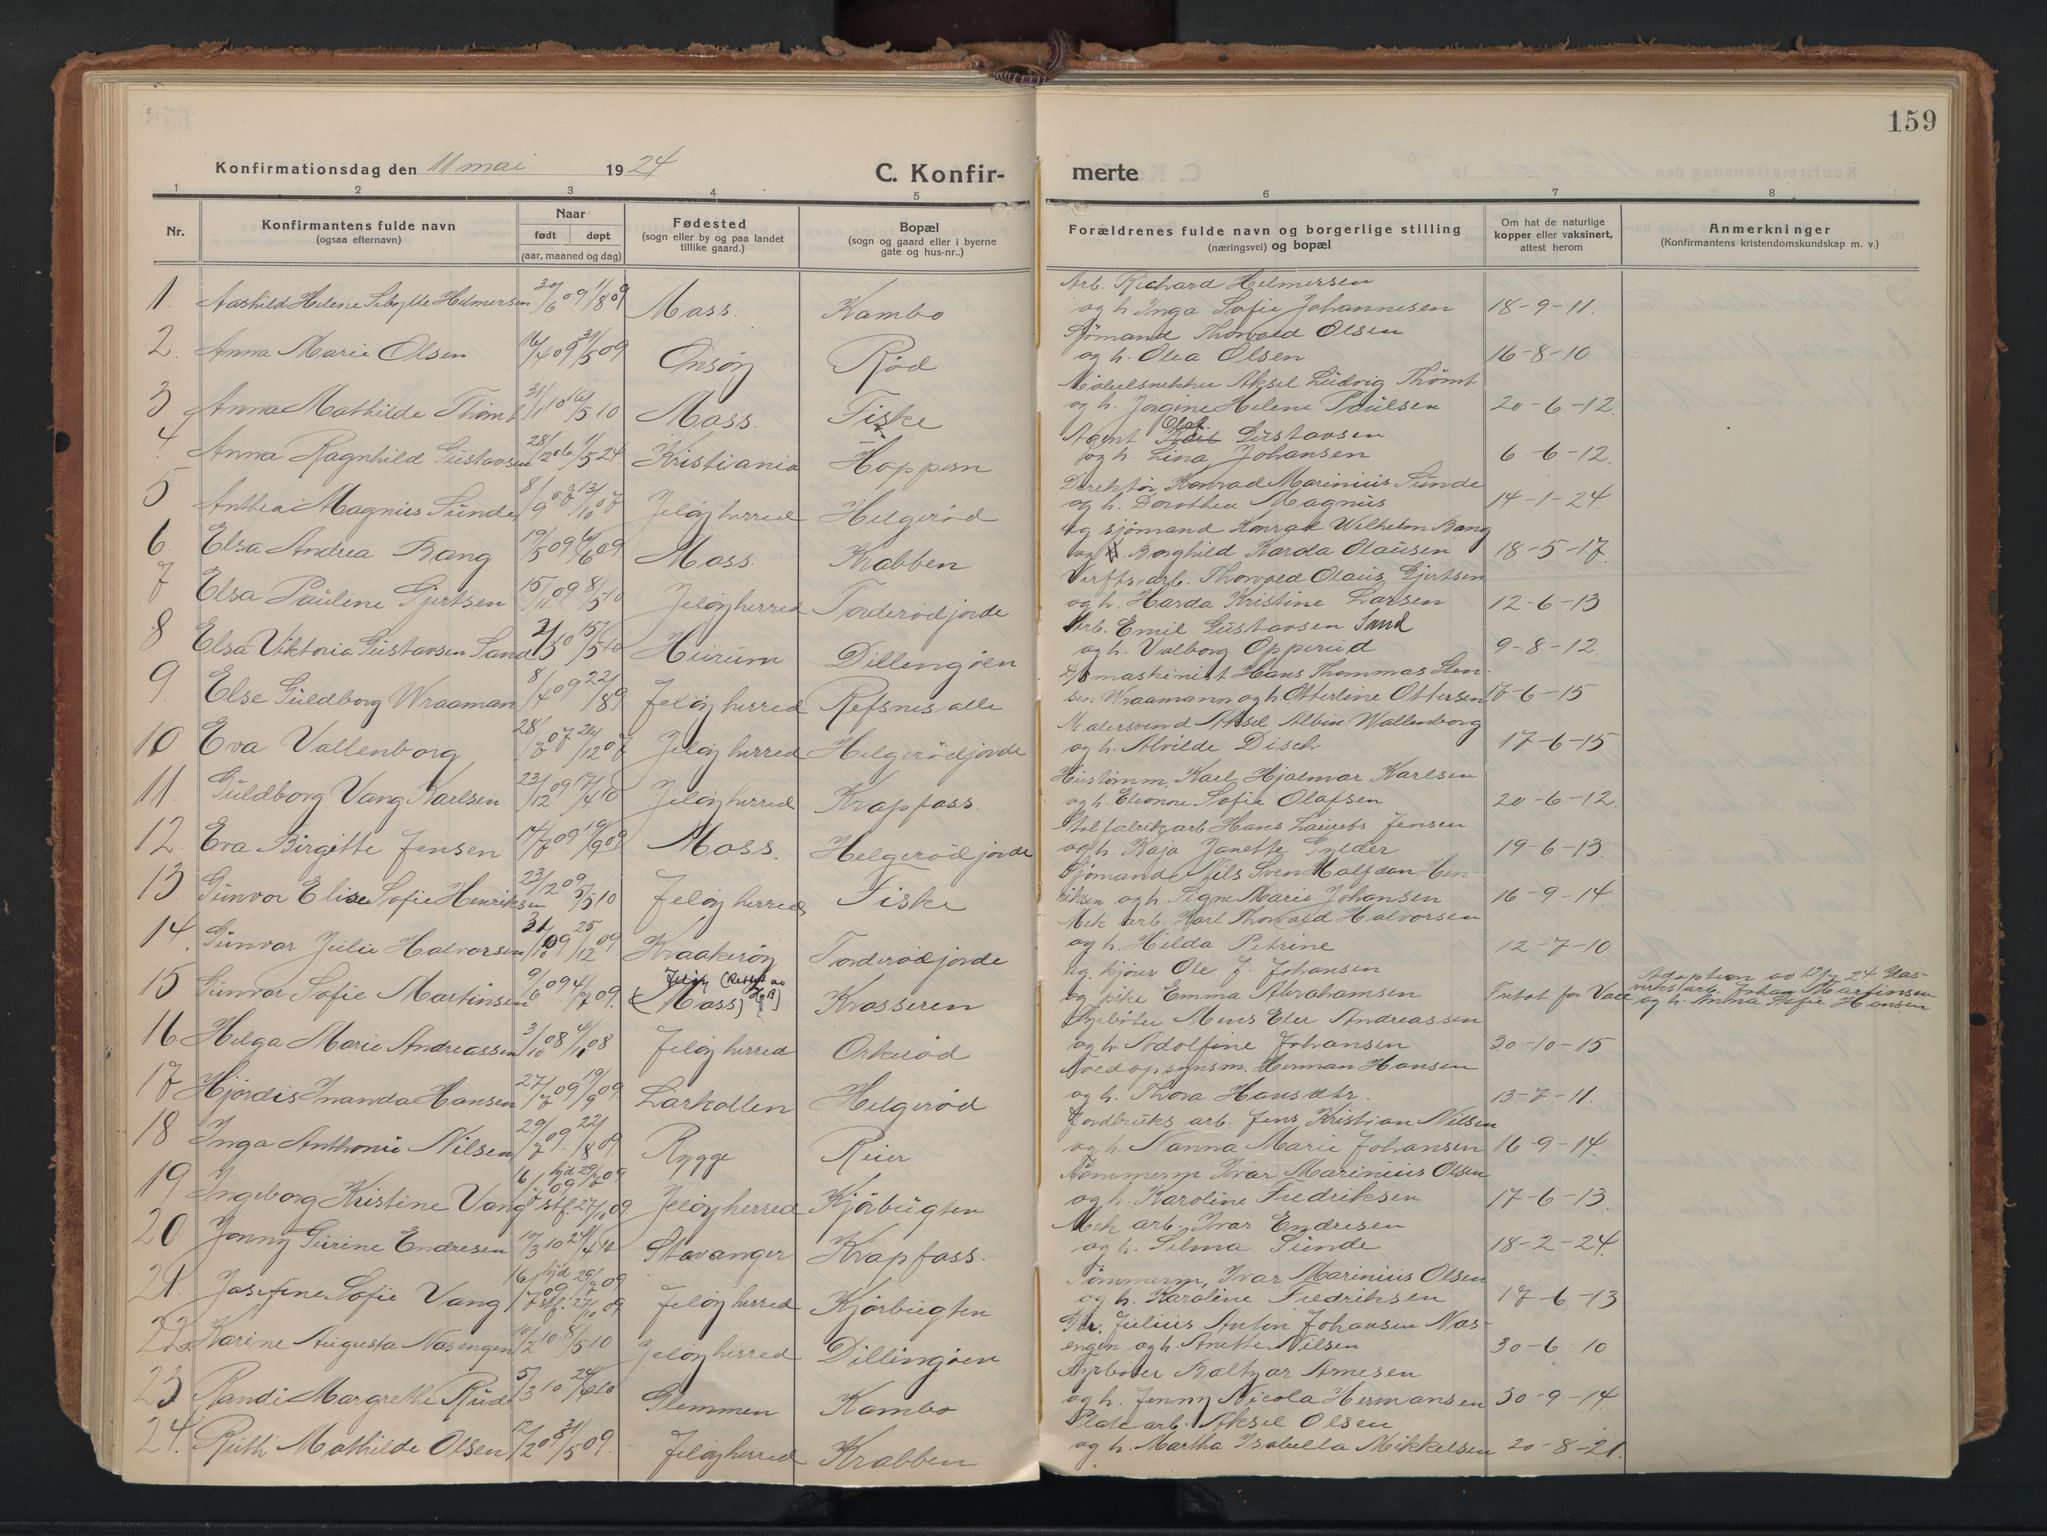 159
Konfirmationsdag den 11 mai 1924 C. Konfir- merte
1 2 3 4 5 6 7 8
Nr. Konfirmantens fulde navn (ogsaa efternavn) Naar født døpt (aar, maaned og dag) Fødested (sogn eller by og paa landet tillike gaard.) Bopæl (sogn og gaard eller i byerne gate og hus-nr..) Forældrenes fulde navn og borgerlige stilling (næringsvei) og bopæl Om hat de naturlige kopper eller vaksinert, attest herom Anmerkninger (Konfirmantens kristendomskundskap m. v.)
Arb. Richard Helmersen
1. Aashild Helene Sibylle Helmersen 30/6 09 1/8 09 Moss. Kambo og h. Inga Sofie Johannesen 18-9-11.
Sjømand Thorvald Olsen
2. Anna Marie Olsen 16/4 09 31/5 09 Onsøy Rød og h. Olea Olsen 16-8-10
Møbelsnekker Aksel Ludvig Thømt
3 Anna Mathilde Thømt 31/1 10 16/5 10 Moss. Fiske og h. Jorgine Helene Paulsen 20-6-12.
Agent Olaf Gustavsen
4. Anna Ragnhild Gustavsen 28/12 06 1/5 24. Kristiania Hoppern og h. Lina Johansen 6-6-12.
Direktør Konrad Marinius Sunde
5 Anthea Magnus Sunde 8/9 07 13/10 07 Jeløy herred Helgerød og h. Dorothea Magnus 14-1-24.
ug sjømand Konrad Wilhelm Bang
6. Elsa Andrea Bang 19/5 09 6/6 09 Moss. Krabben og Borghild Karda Olausen 18-5-17.
Verftsarb. Thorvald Olaus Gjertsen
7 Elsa Pauline Gjertsen 15/11 09 8/5 10 Jeløy herred Torderødjorde og h. Harda Kristine Larsen 12-6-13
Arb. Emil Gustavsen Sand
8 Elsa Viktoria Gustavsen Sand 2/3 10 15/5 10 Hurum Dillengøen og h. Valborg Opperud 9-8-12.
D/s maskinist Hans Thommas Sten-
9. Else Guldborg Wraaman 8/4 09 22/8 9 Jeløy herred Refsnes alle sen Wraamann og h. Otterline Ottersen 17-6-15
Malersvend Aksel Albin Wallenborg
10 Eva Vallenborg 28/7 07 26/12 07 Jeløy herred Helgerødjorde og h. Alvilde Disch 17-6-15
Hustømm. Karl Hjalmar Karlsen
11. Guldborg Vang Karlsen 23/12 09 17/4 10 Jeløy herred Krapfoss. og h. Eleonore Sofie Olafsen 20-6-12.
Stolfabrikarb Hans Lauritz Jensen
12. Eva Birgitte Jensen 14/7 09 19/9 09 Moss. Helgerødjorde og h. Kaja Janette Gylder 19-6-13.
Sjømand Nils Sven Halfdan Hen-
13 Gunvor Elise Sofie Henriksen 23/12 09 5/5 10 Jeløy herred Fiske riksen og h. Signe Marie Johansen 16-9-14.
Mek arb. Karl Thorvald Halvorsen
14. Gunvor Julie Halvorsen 31/10 09 25/12 09 Kraakerøy Torderødjorde og h. Hilda Petrine 12-7-10
ug. kjører Ole J. Johansen
15 Gunvor Sofie Martinsen 9/6 09 4/7 09. Jeløy (Moss) Krosseren og pike Emma Abrahamsen Fritat for Vacc Adoption av 24 Glasverksarb. Johan Martinsen og h. Anna Sofie Hansen
Fyrbøter Mons Eler Andreassen
16 Helga Marie Andreassen 3/10 08 /11 08 Jeløy herred Orkerød og h. Adolfine Johansen 30-10-15
Veiopsynsm. Herman Hansen
17 Hjørdis Inanda Hansen 27/7 09 19/9 09 Larkollen Helgerød og h. Thora Hansdtr. 13-7-11.
Jordbruks arb. Jens Kristian Nilsen
18 Inga Anthonie Nilsen 29/7 09. 22/8 09. Rygge Reier og h. Nanna Marie Johansen 16-9-14.
Tømmerm. Ivar Marinius Olsen
19 Ingeborg Kristine Vang 16/7 09 hjd 29/7 09 stf. 27/10 09 Jeløy herred Kjørbugten og h. Karoline Fredriksen 17-6-13.
Mek arb. Ivar Endresen
20 Jonny Gurine Endresen 10/3 10 24/4 10 Stavanger Krapfoss. og h. Selma Sunde 18-2-24.
Tømmerm. Ivar Marinius Olsen
21. Josefine Sofie Vang 16/7 09 hjd 29/7 09 stf. 27/10 09 Jeløy herred Kjørbugten og h. Karoline Fredriksen 17-6-13
Julius Anton Johansen Nas-
22. Karine Augusta Nasengen 10/2 10 8/5 10 Jeløy herred Dillingøen engen og h. Anette Nilsen 30-6-10
Fyrbøter Baltzar Arnesen
23 Randi Margrethe Rude 5/3 10 24/6 10 Glemmen Kambo og h. Jenny Nicola Hermansen 30-9-14.
Platearb. Aksel Olsen
24. Ruth Mathilde Olsen 12/2 09 31/5 09. Jeløy herred Krabben og h. Martha Isabella Mikkelsen 20-8-21.